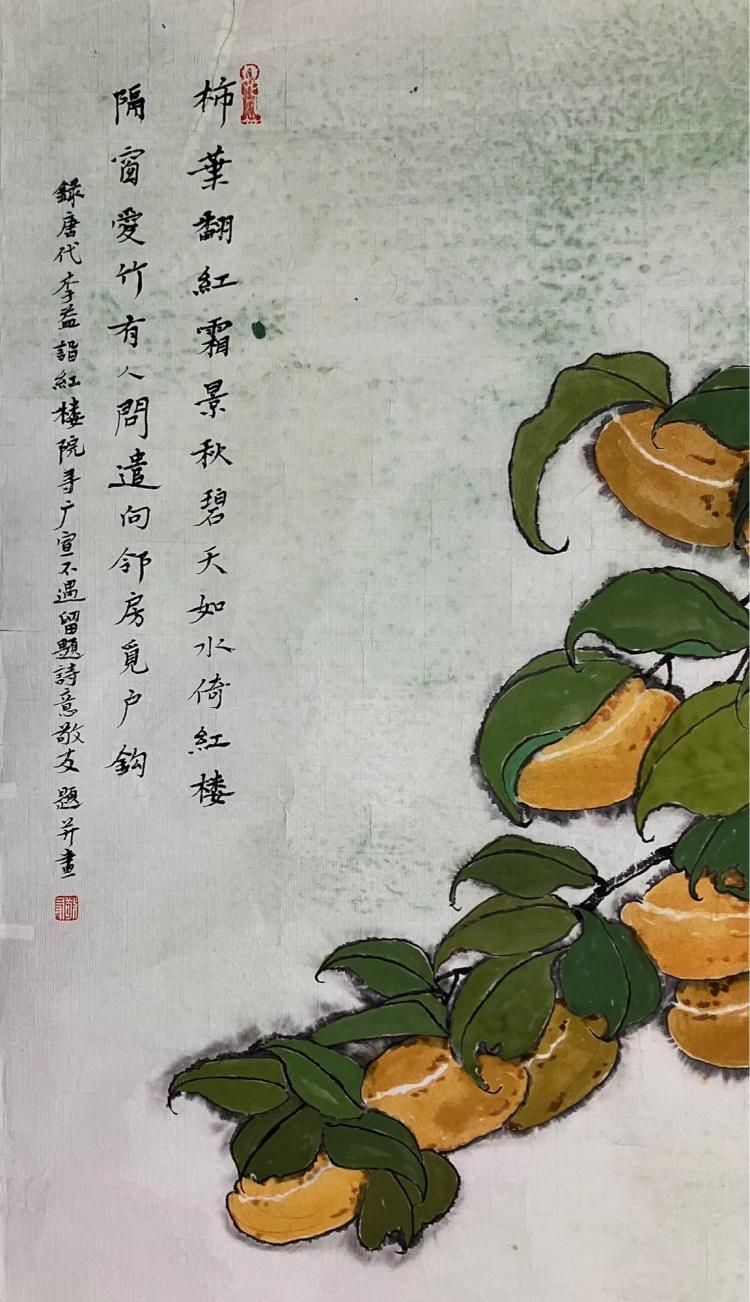 柿葉翻紅霜景秋碧天如水倚紅楼
隔窗愛竹有人問遣向邻房覓户鈎
録唐代李益詣紅楼院寻广宣不遇留题詩意敬友题并畫